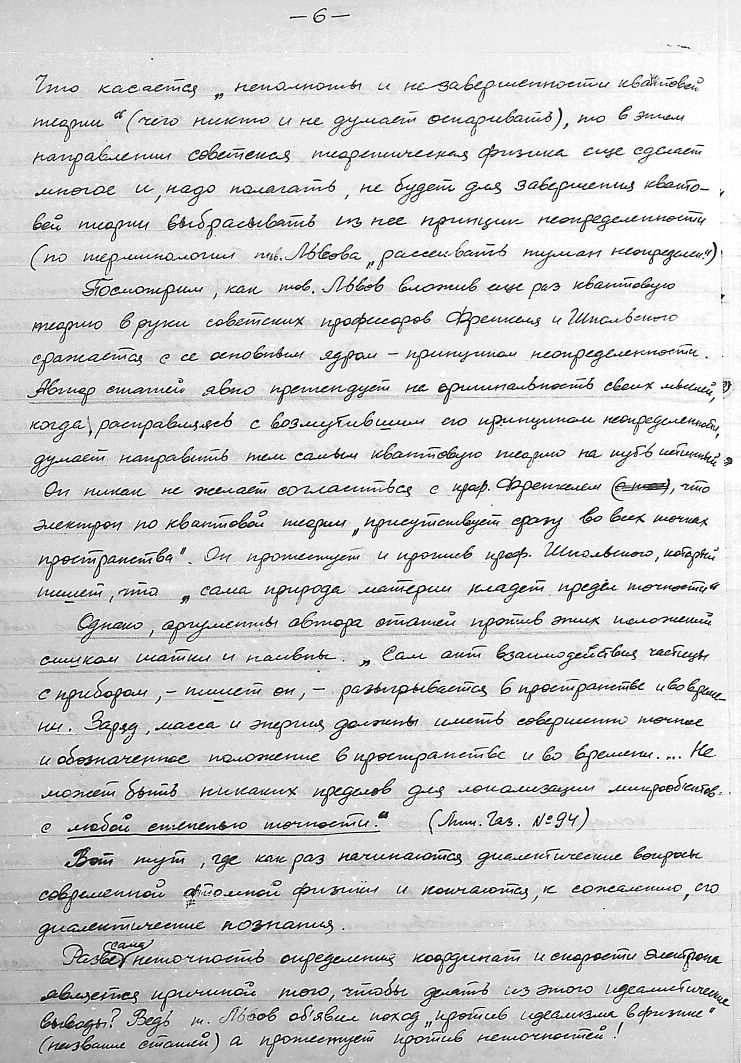 — 6 —
Что касается „неполноты и незавершенности квантовой
теории“ (чего никто и не думает оспаривать), то в этом
направлении советская теоретическая физика еще сделает
многое и, надо полагать, не будет для завершения кванто-
вой теории выбрасывать из нее принцип неопределенности
(по терминологии тов. Львова „рассеивать туман неопределен.“)
Посмотрим, как тов. Львов вложив еще раз квантовую
теорию в руки советских профессоров Френкеля и Шпольского
сражается с ее основным ядром – принципом неопределенности.
Автор статей явно претендует не оригинальность своих мыслей,
когда, расправляясь с возмутившим его принципом неопределенности,
думает направить тем самым квантовую теорию на путь истинный.
Он никак не желает согласиться с проф. Френкелем, что
электрон по квантовой теории „присутствует сразу во всех точках
пространства“. Он протестует и против проф. Шпольского, который
пишет, что „сама природа материи кладет предел точности“
Однако, аргументы автора статей против этих положений
слишком шатки и наивны. „Сам акт взаимодействия частицы
с прибором, – пишет он, – разыгрывается в пространстве и во време-
ни. Заряд, масса и энергия должны иметь совершенно точное
и обозначенное положение в пространстве и во времени.... Не
может быть никаких пределов для локализации микрообъектов
с любой степенью точности.“ (Лит. Газ. №94)
Вот тут, где как раз начинаются диалектические вопросы
современной атомной физики и кончаются, к сожалению, его
диалектические познания.
Разве сама неточность определения координат и скорости электрона
является причиной того, чтобы делать из этого идеалистические
выводы? Ведь т. Львов об'явил поход „против идеализма в физике“
(название статей) а протестует против неточностей!